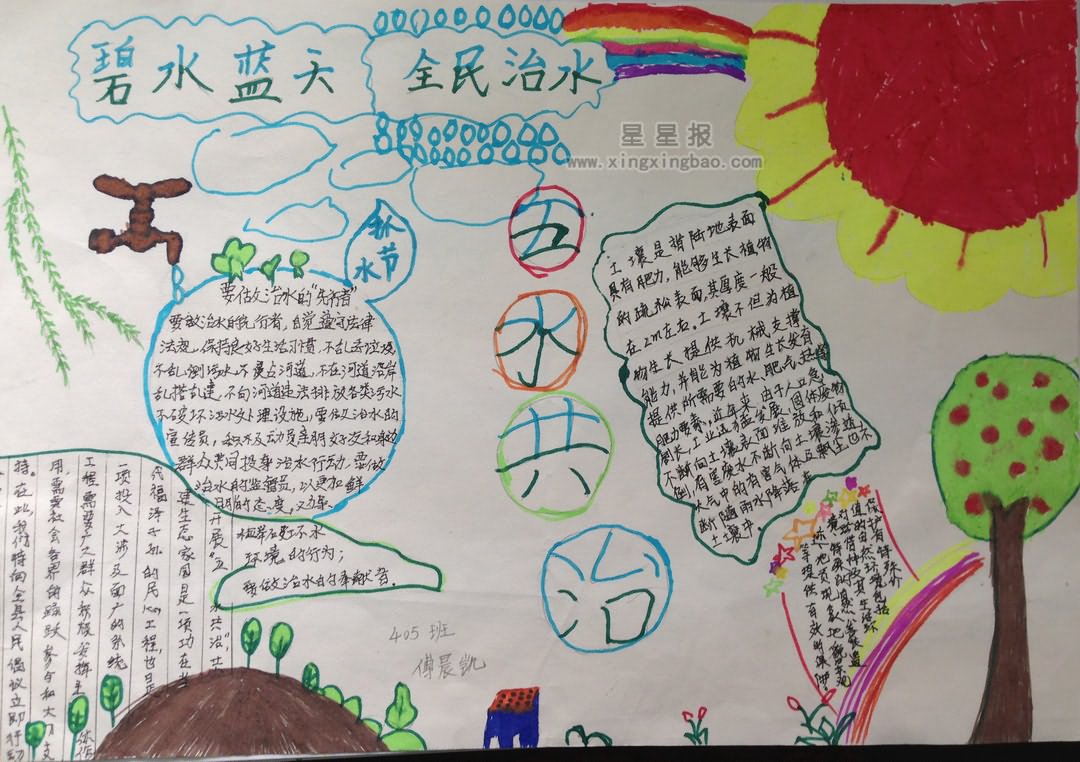 碧水蓝天 全民治水
星星报
www.xingxingbao.com
环
水节
五
水
共
治
要做治水的"先行者"
要做治水的先行者,自觉遵守法律
法规,保持良好生活习惯,不乱丢垃圾
不乱倒污水,不侵占河道,不在河道沿岸
乱搭乱建,不向河道违法排放各类污水
不破坏污水处理设施,要做治水的
宣传员,积极动员亲朋好友和身边
群众共同投身治水行动,要做
治水的监督员,以更加鲜
明的态度,
环境的行为;
要做治水的奉献者。
土壤是指陆地表面
具有肥力,能够生长植物
的疏松表面,其厚度一般
在2m左右。土壤不但为植
物生长提供机械支撑
能力,并能为植物生长发育
提供所需要的水、肥、气、
肥力要素。近年来,由于人口急
剧长,工业迅猛发展,固体废物
不断向土壤表面堆放和倾
倒,有害废水不断向土壤渗透
大气中的有害气体及飘尘也不
断随雨水降落在
土壤中。
开展"五水共治",
建生态家园是一项功在当
代福泽子孙的民心工程,也是
一项投入大、涉及面广的系统
工程,需要广大群众积极发挥主体作
用,需要社会各界的踊跃参与和大力支
持。在此,我们特向全县人民倡议立即行动
保护有特殊价
值的自然环境,包括
等提供有效的保护。
405班
傅晨凯